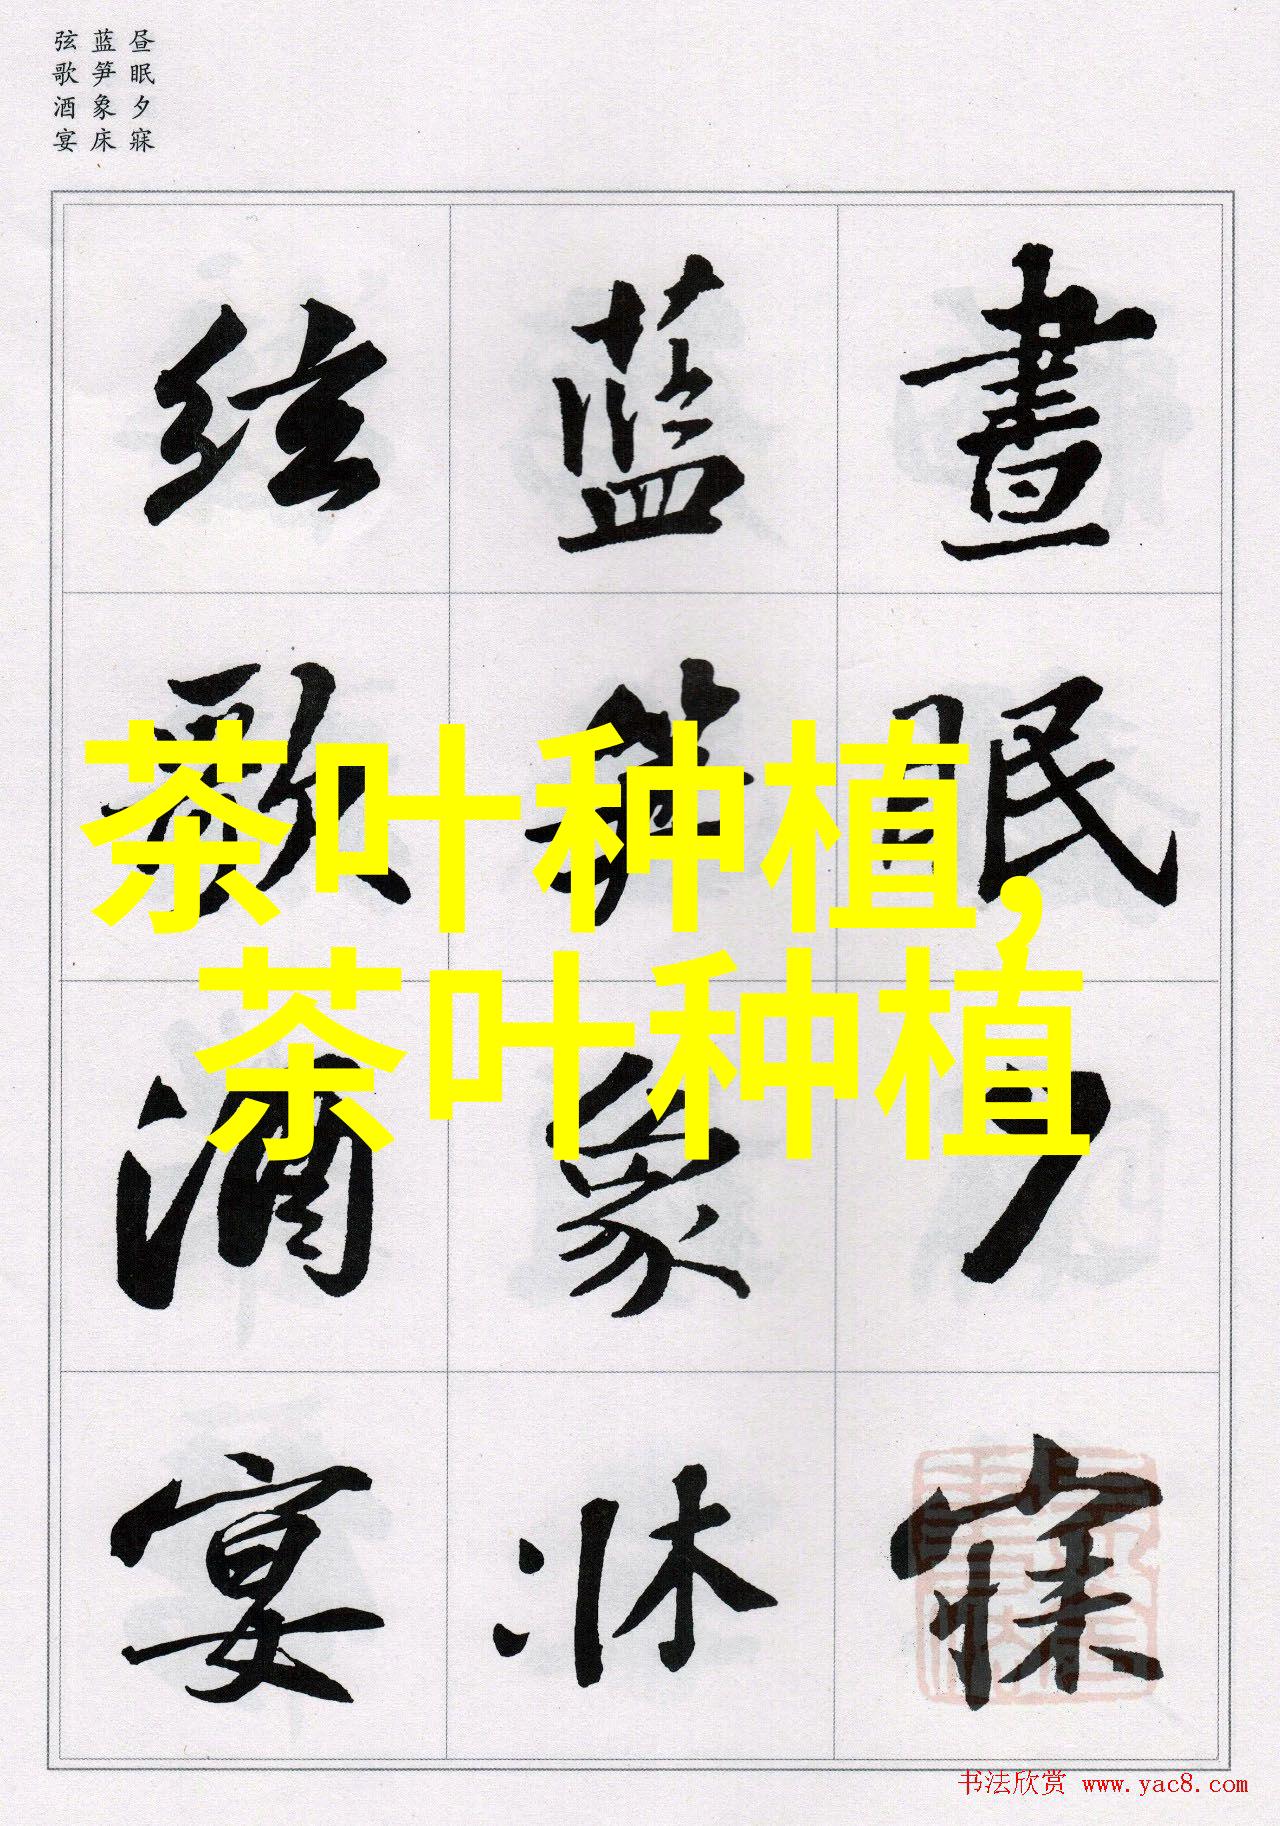 昼眠夕寐
蓝笋象床
弦歌酒宴
晝眠夕寐
藍笋象牀
絃歌酒宴
茶叶种植,
茶叶种植
书法欣赏 www.yac8.com